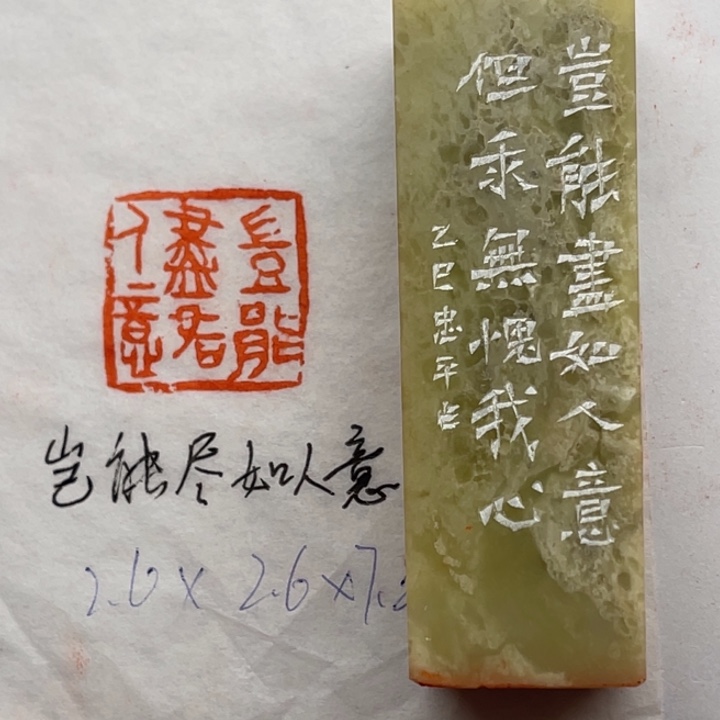 豈能
盡如
人意
岂能尽如人意
2.6 x 2.6 x 7.
豈能盡如人意
但求無愧我心
乙巳忠平